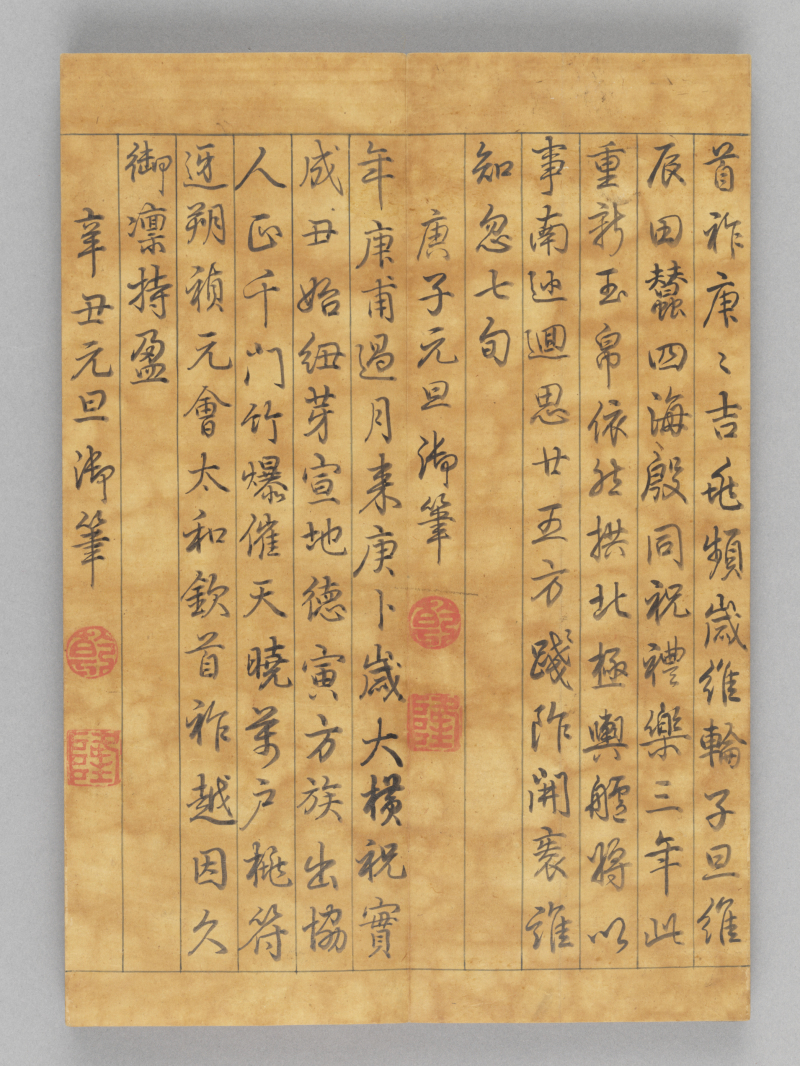 首祚庚〻吉兆頻歲維輪子旦維
辰田蠶四海殷同祝禮樂三年此
重新玉帛依然拱北極輿艫將以
事南廵迴思廿五方踐阼開袠誰
知忽七旬
庚子元旦御筆
乾
隆
年庚甫過月来庚卜歲大橫祝實
成丑始紐芽宣地德寅方族出協
人正千門竹爆催天曉萬戶桃符
迓朔禎元會太和欽首祚越因久
御凜持盈
辛丑元旦御筆
乾
隆